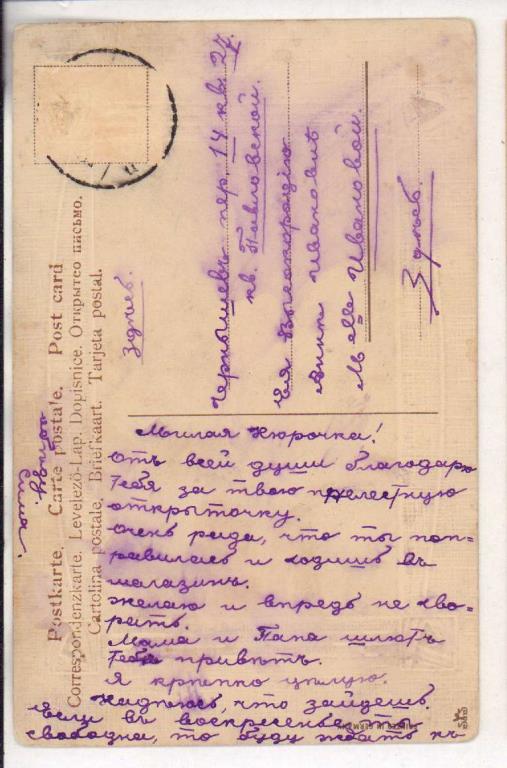 Postkarte. Carte postale. Post card
Correspondenzkarte. Levelező-Lap. Dopisnice. Открытое письмо.
Cartolina postale. Briefkaart. Tarjeta postal.
здѣсь.
Чернышевъ пер. 14 кв. 27.
кв. Павловской.
Ея Высокородію
Аннѣ Ивановнѣ
M elle Ивановой.
Здѣсь.
Милая Нюрочка!
Отъ всей души благодарю
тебя за твою прелестную
открыточку.
Очень рада, что ты поп-
равилась и ходишь въ
магазинъ.
Желаю и впредь не хво-
рать.
Мама и Папа шлютъ
тебѣ привѣтъ.
Я крѣпко цѣлую.
Надѣюсь, что зайдешь.
Если въ воскресенье
свободна, то буду ждать къ